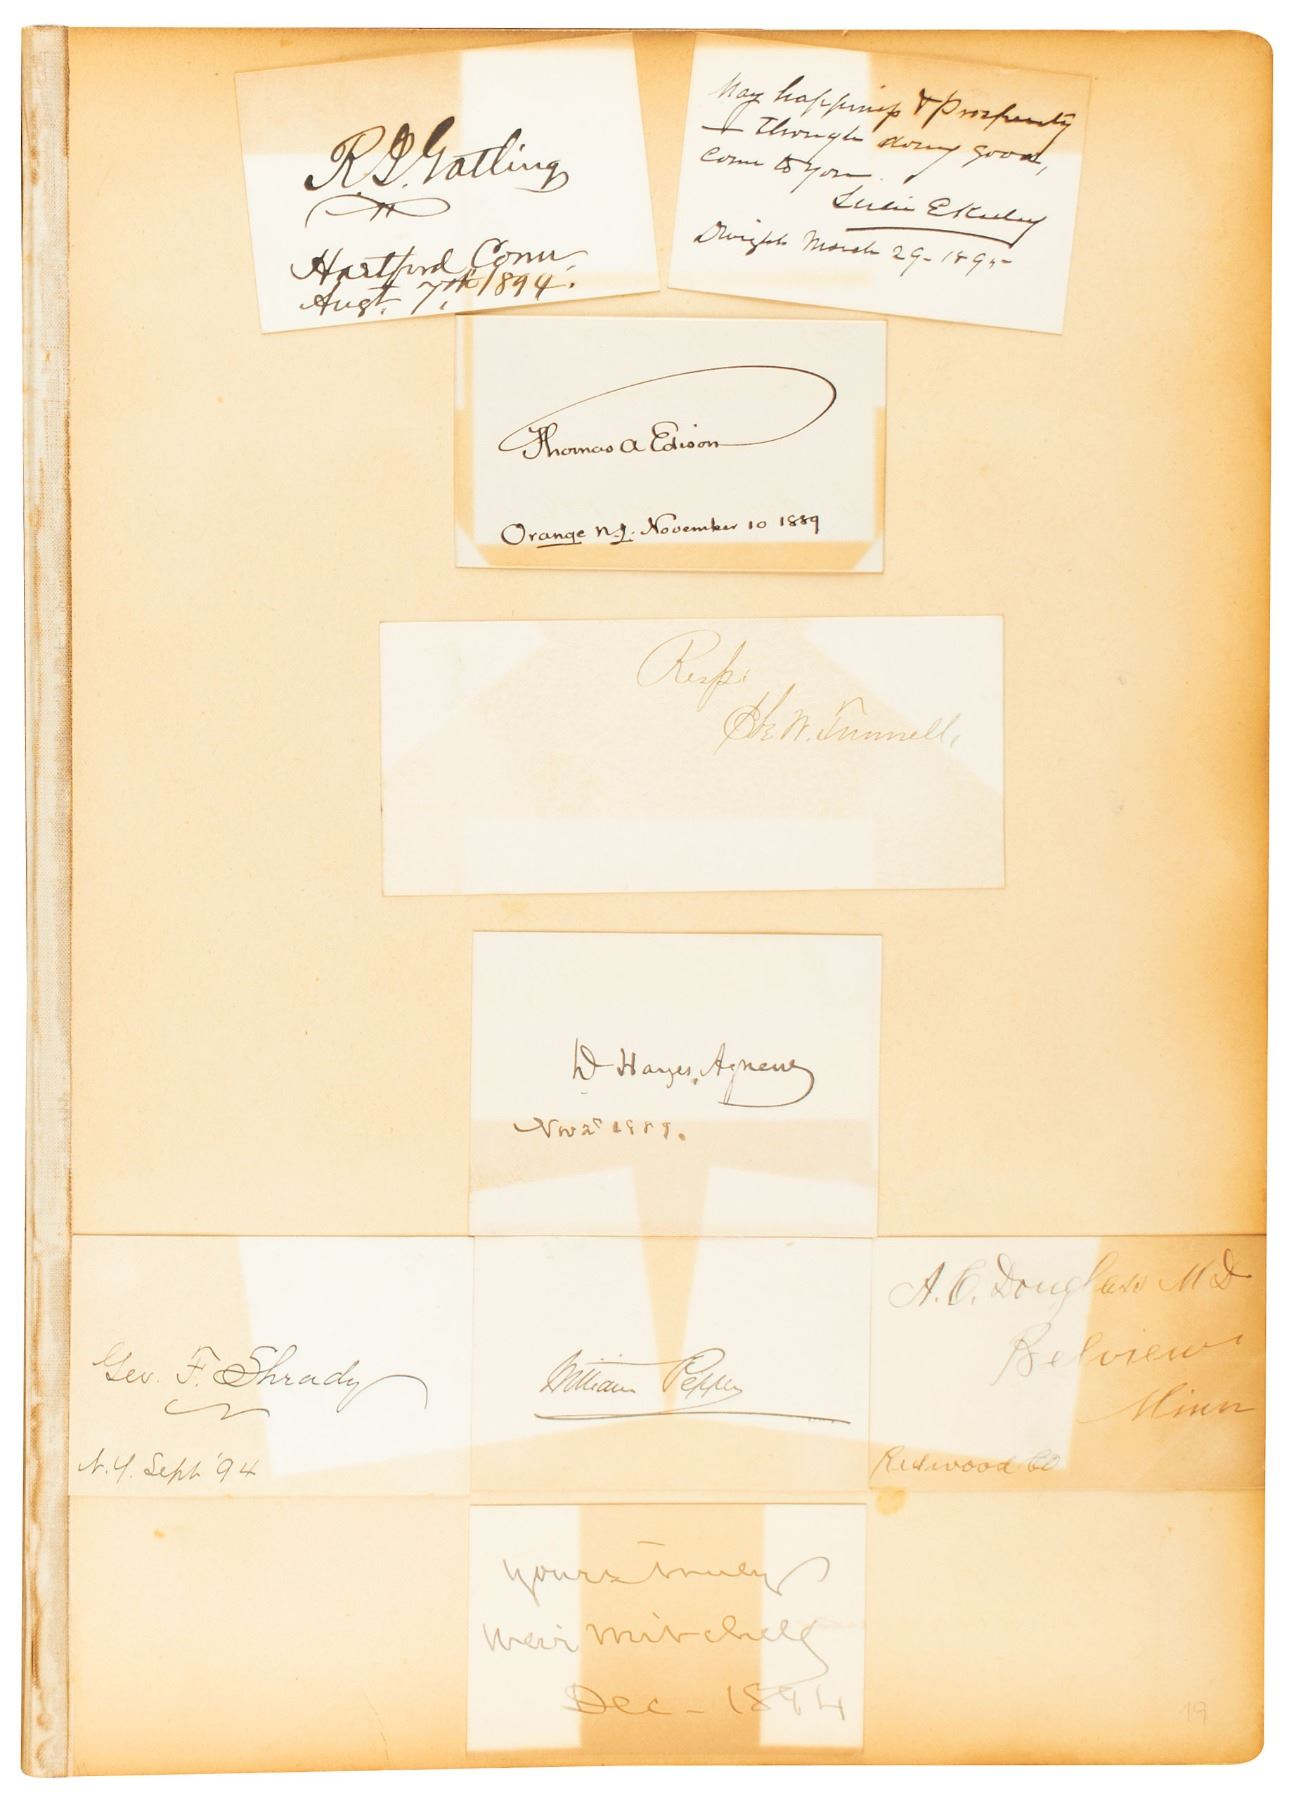 R.J. Gatling
Hartford Conn
Augt. 7th 1894.
May happiness & Prosperity
through doing good,
come to you.
Leslie E Keeley
Dwight March 29-1895-
Thomas A Edison
Orange N.J. November 10 1889
Resp.
W. Tunnell,
D Hayes Agnew
Nov 2d 1889.
Geo. F. Shrady
N.Y. Sept '94
William Pepper
A. C. Douglass M D
Belview
Minn
Redwood Co
yours truly
Weir Mitchell
Dec - 1894
19